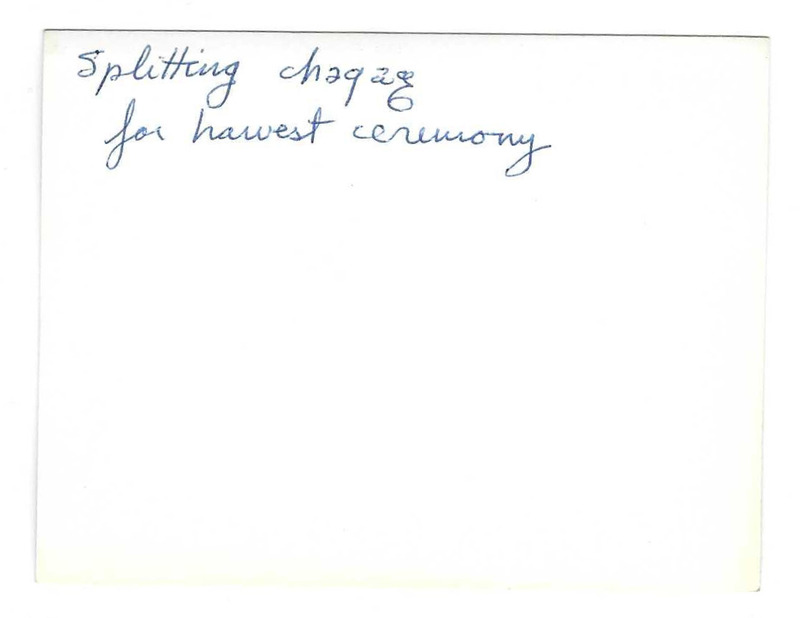 Splitting chagag
for harvest ceremony